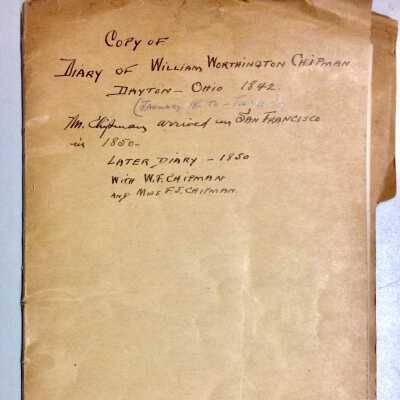 COPY OF
DIARY OF WILLIAM WORTHINGTON CHIPMAN
DAYTON - OHIO 1842
(January 1st to
Mr. Chipman arrived in SAN FRANCISCO
in 1850 -
LATER DIARY - 1850
WITH W.F. CHIPMAN
AND MISS F.S. CHIPMAN.